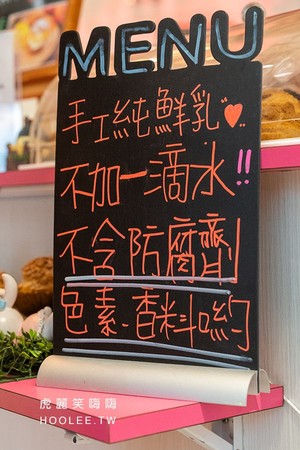 MENU
手工純鮮乳♥..
不加一滴水!!
不含防腐劑
色素、香料喲
虎麗笑嗨嗨
HOOLEE.TW